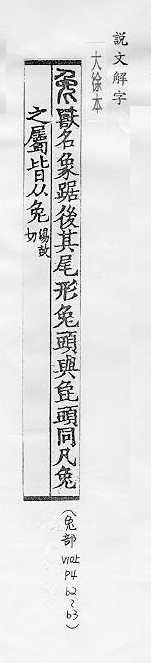 説文解字
大徐本
兔獸名象踞後其尾形兔頭與㲋頭同凡兔
之屬皆从兔湯故切
(兔部 V10上 P4 b2~b3)